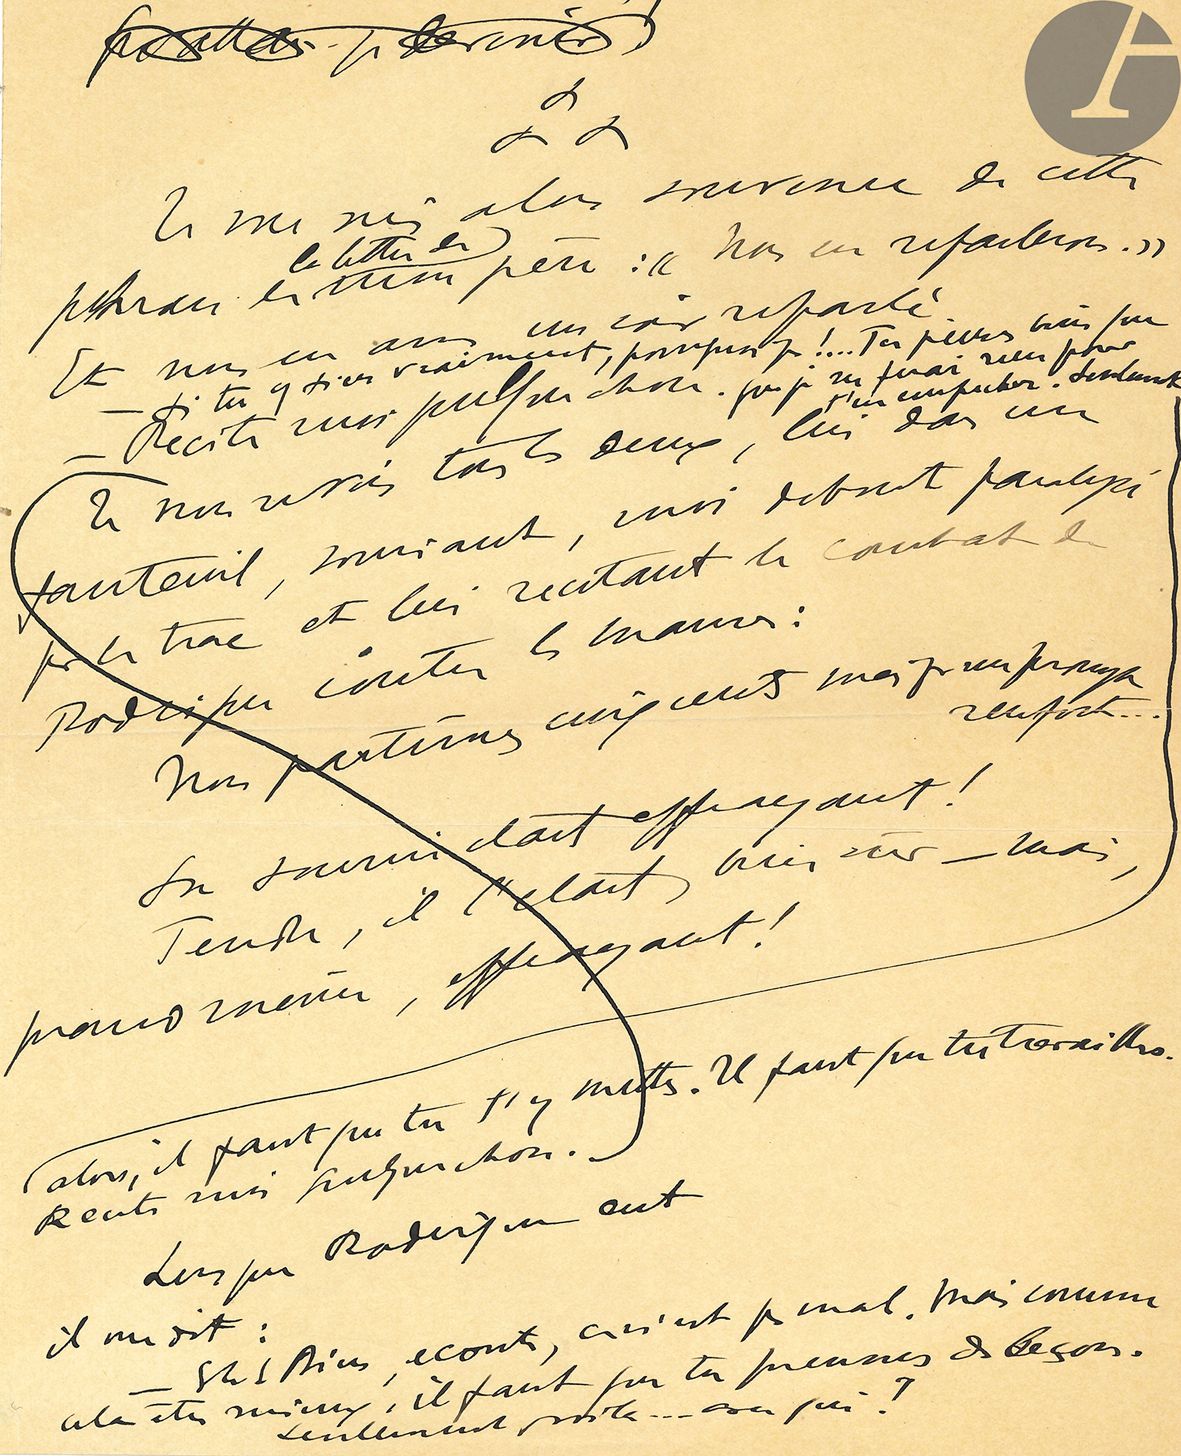 Je me suis alors souvenu de cette
la lettre de
phrase de mon père : « Nous en reparlerons. »
Et nous en avons un soir reparlé.
— Si tu y tiens vraiment, pourquoi pas !... Tu penses bien que
je ne ferai rien pour
t'en empêcher. Seulement
— Récite moi quelque chose.
Je nous revois tous les deux, lui dans un
fauteuil, souriant, moi debout paralysé
par le trac et lui récitant le combat de
Rodrigue contre les maures :
Nous partîmes cinq cents mais par un prompt
renfort...
Son sourire était effrayant !
Tendre, il l'était, bien sûr — mais,
quand même, effrayant !
alors, il faut que tu t'y mettes. Il faut que tu travailles.
Récite moi quelque chose.
Lorsque Rodrigue eut
il me dit :
— Eh ! Bien, écoute, ce n'est pas mal. Mais comme
il faut que tu prennes des leçons.
seulement voilà... avec qui ?